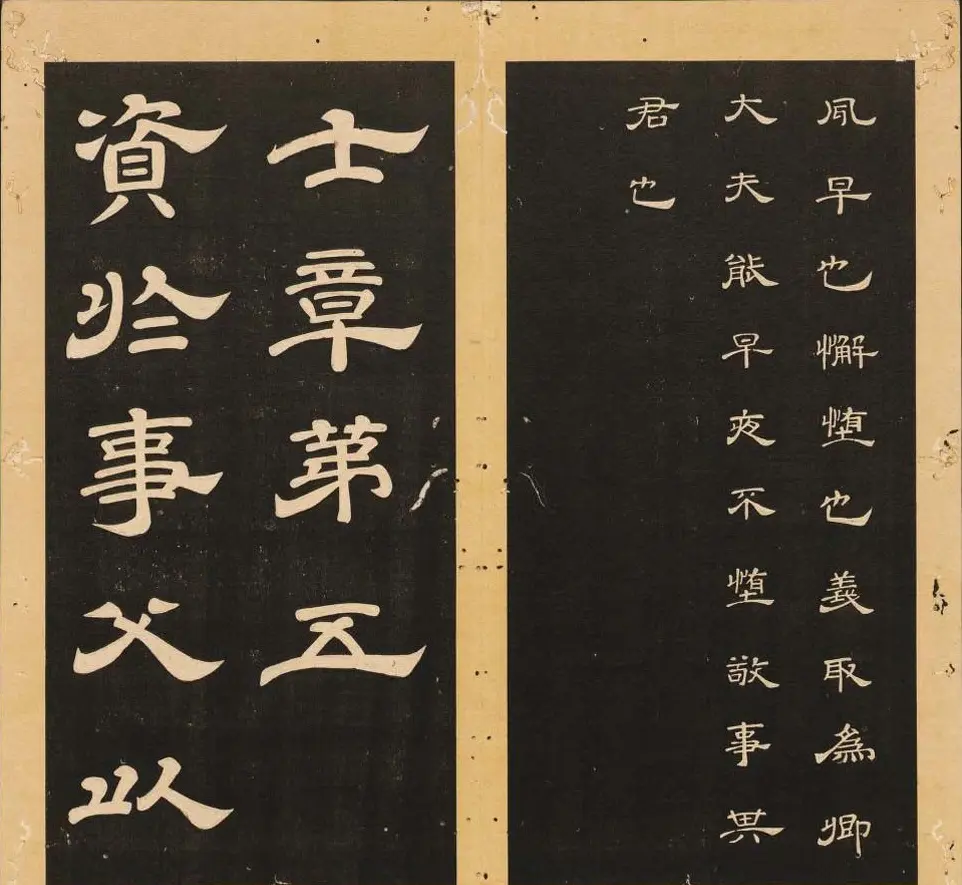 夙早也懈墮也義取為卿
大夫能早夜不墮敬事其
君也
士章第五
資於事父以